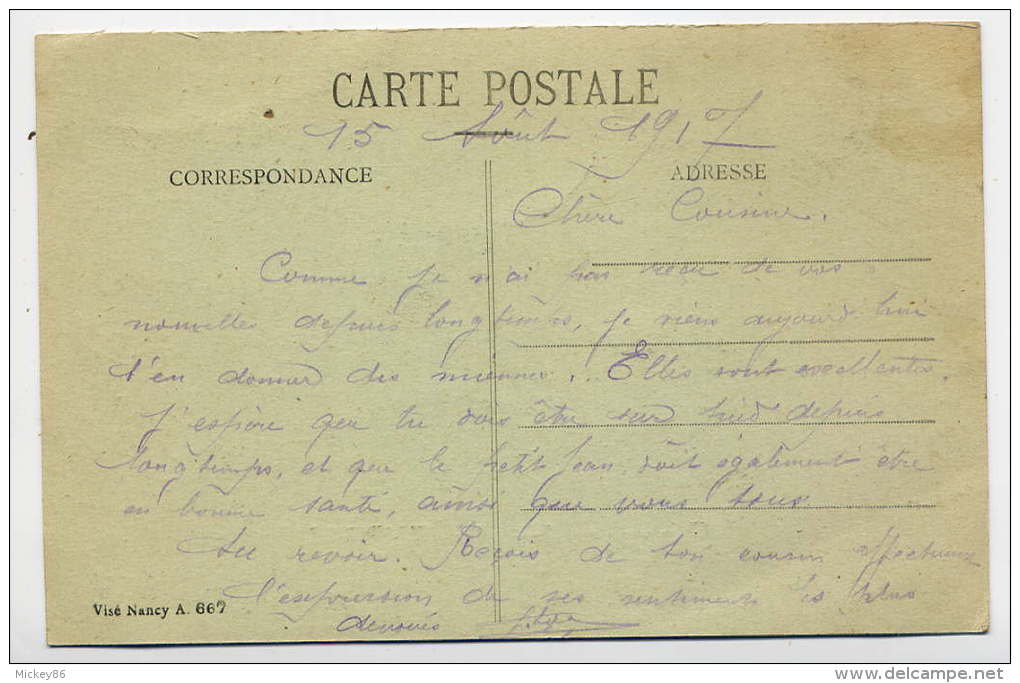 CARTE POSTALE
15 Août 1917
CORRESPONDANCE
ADRESSE
Chère Cousine,
Comme je n'ai pas reçu de vos
nouvelles depuis longtemps, je viens aujourd'hui
t'en donner des miennes. Elles sont excellentes.
J'espère que tu dois être sur pied depuis
longtemps, et que le petit Jean doit également être
en bonne santé, ainsi que vous tous
Au revoir. Reçois de ton cousin affectueux
l'expression de ses sentiments les plus
dévoués
Visé Nancy A. 667
Mickey86
delcampe.net